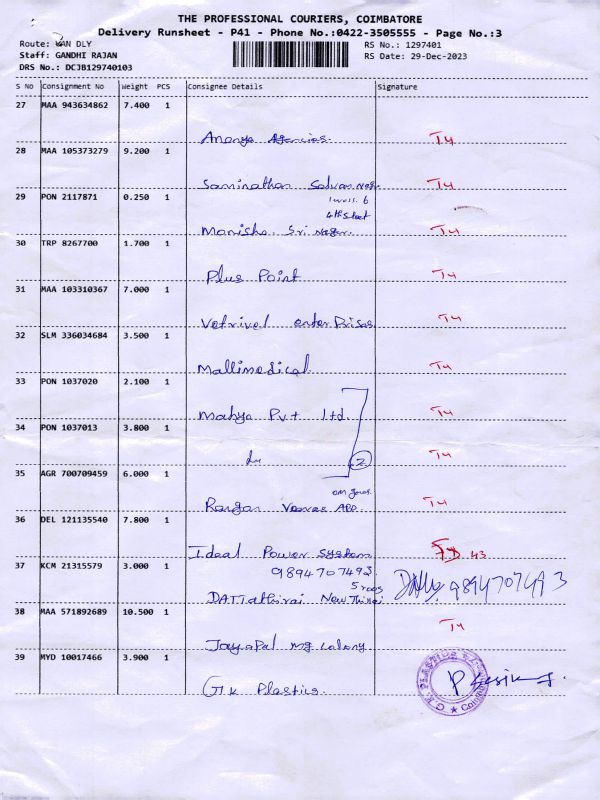 THE PROFESSIONAL COURIERS, COIMBATORE
Delivery Runsheet - P41 - Phone No.:0422-3505555 - Page No.:3
Route: VAN DLY
RS No.: 1297401
Staff: GANDHI RAJAN
RS Date: 29-Dec-2023
DRS No.: DCJB129740103
S No Consignment No Weight PCS Consignee Details Signature
27 MAA 943634862 7.400 1
Ananya Agencies. T4
28 MAA 105373279 9.200 1
Saminathan T4
29 PON 2117871 0.250 1
6
4th Street
Manisha Sri Nagar. T4
30 TRP 8267700 1.700 1
Plus Point T4
31 MAA 103310367 7.000 1
Vetrivel enterprises T4
32 SLM 336034684 3.500 1
Mallimedical T4
33 PON 1037020 2.100 1
Mahya Pvt Ltd. T4
34 PON 1037013 3.800 1
2 T4
35 AGR 700709459 6.000 1
Rangan APP. T4
36 DEL 121135540 7.800 1
Ideal Power System 43
37 KCM 21315579 3.000 1
9894707493
DATTathirai 9894707493
38 MAA 571892689 10.500 1
T4
Jayapal mg colony
39 MYD 10017466 3.900 1
GK Plastics.